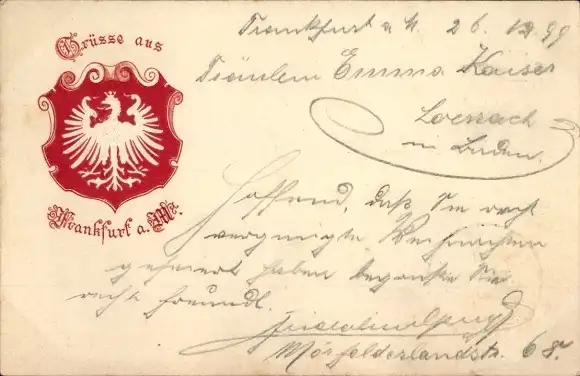 Grüsse aus
Frankfurt a. M.
Frankfurt a M. 26. 12. 99
Fräulein Emma Kaiser
Loerrach
in Baden.
Hoffend, daß Sie recht
vergnügte Weihnachten
gefeiert haben begrüßt Sie
recht freundl.
Mörfelderlandstr. 68.